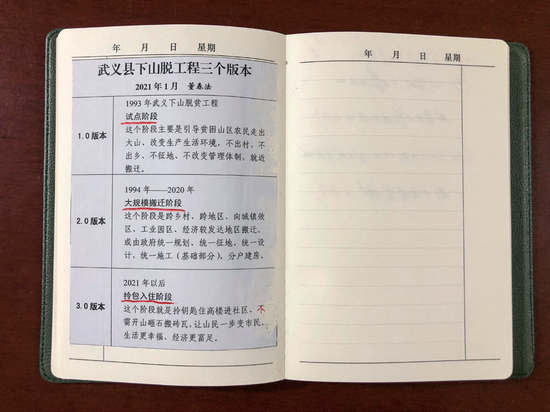 年 月 日 星期
武义县下山脱工程三个版本
2021年1月 董春法
1.0版本
1993年武义下山脱贫工程
试点阶段
这个阶段主要是引导贫困山区农民走出
大山、改变生产生活环境，不出村、不
出乡、不征地、不改变管理体制，就近
搬迁。
2.0版本
1994年——2020年
大规模搬迁阶段
这个阶段是跨乡村、跨地区、向城镇效
区、工业园区、经济较发达地区搬迁，
或由政府统一规划、统一征地、统一设
计、统一施工（基础部分），分户建房。
3.0版本
2021年以后
拎包入住阶段
这个阶段就是拎钥匙住高楼进社区，不
需开山砸石搬砖瓦，让山民一步变市民、
生活更幸福、经济更富足。
年 月 日 星期